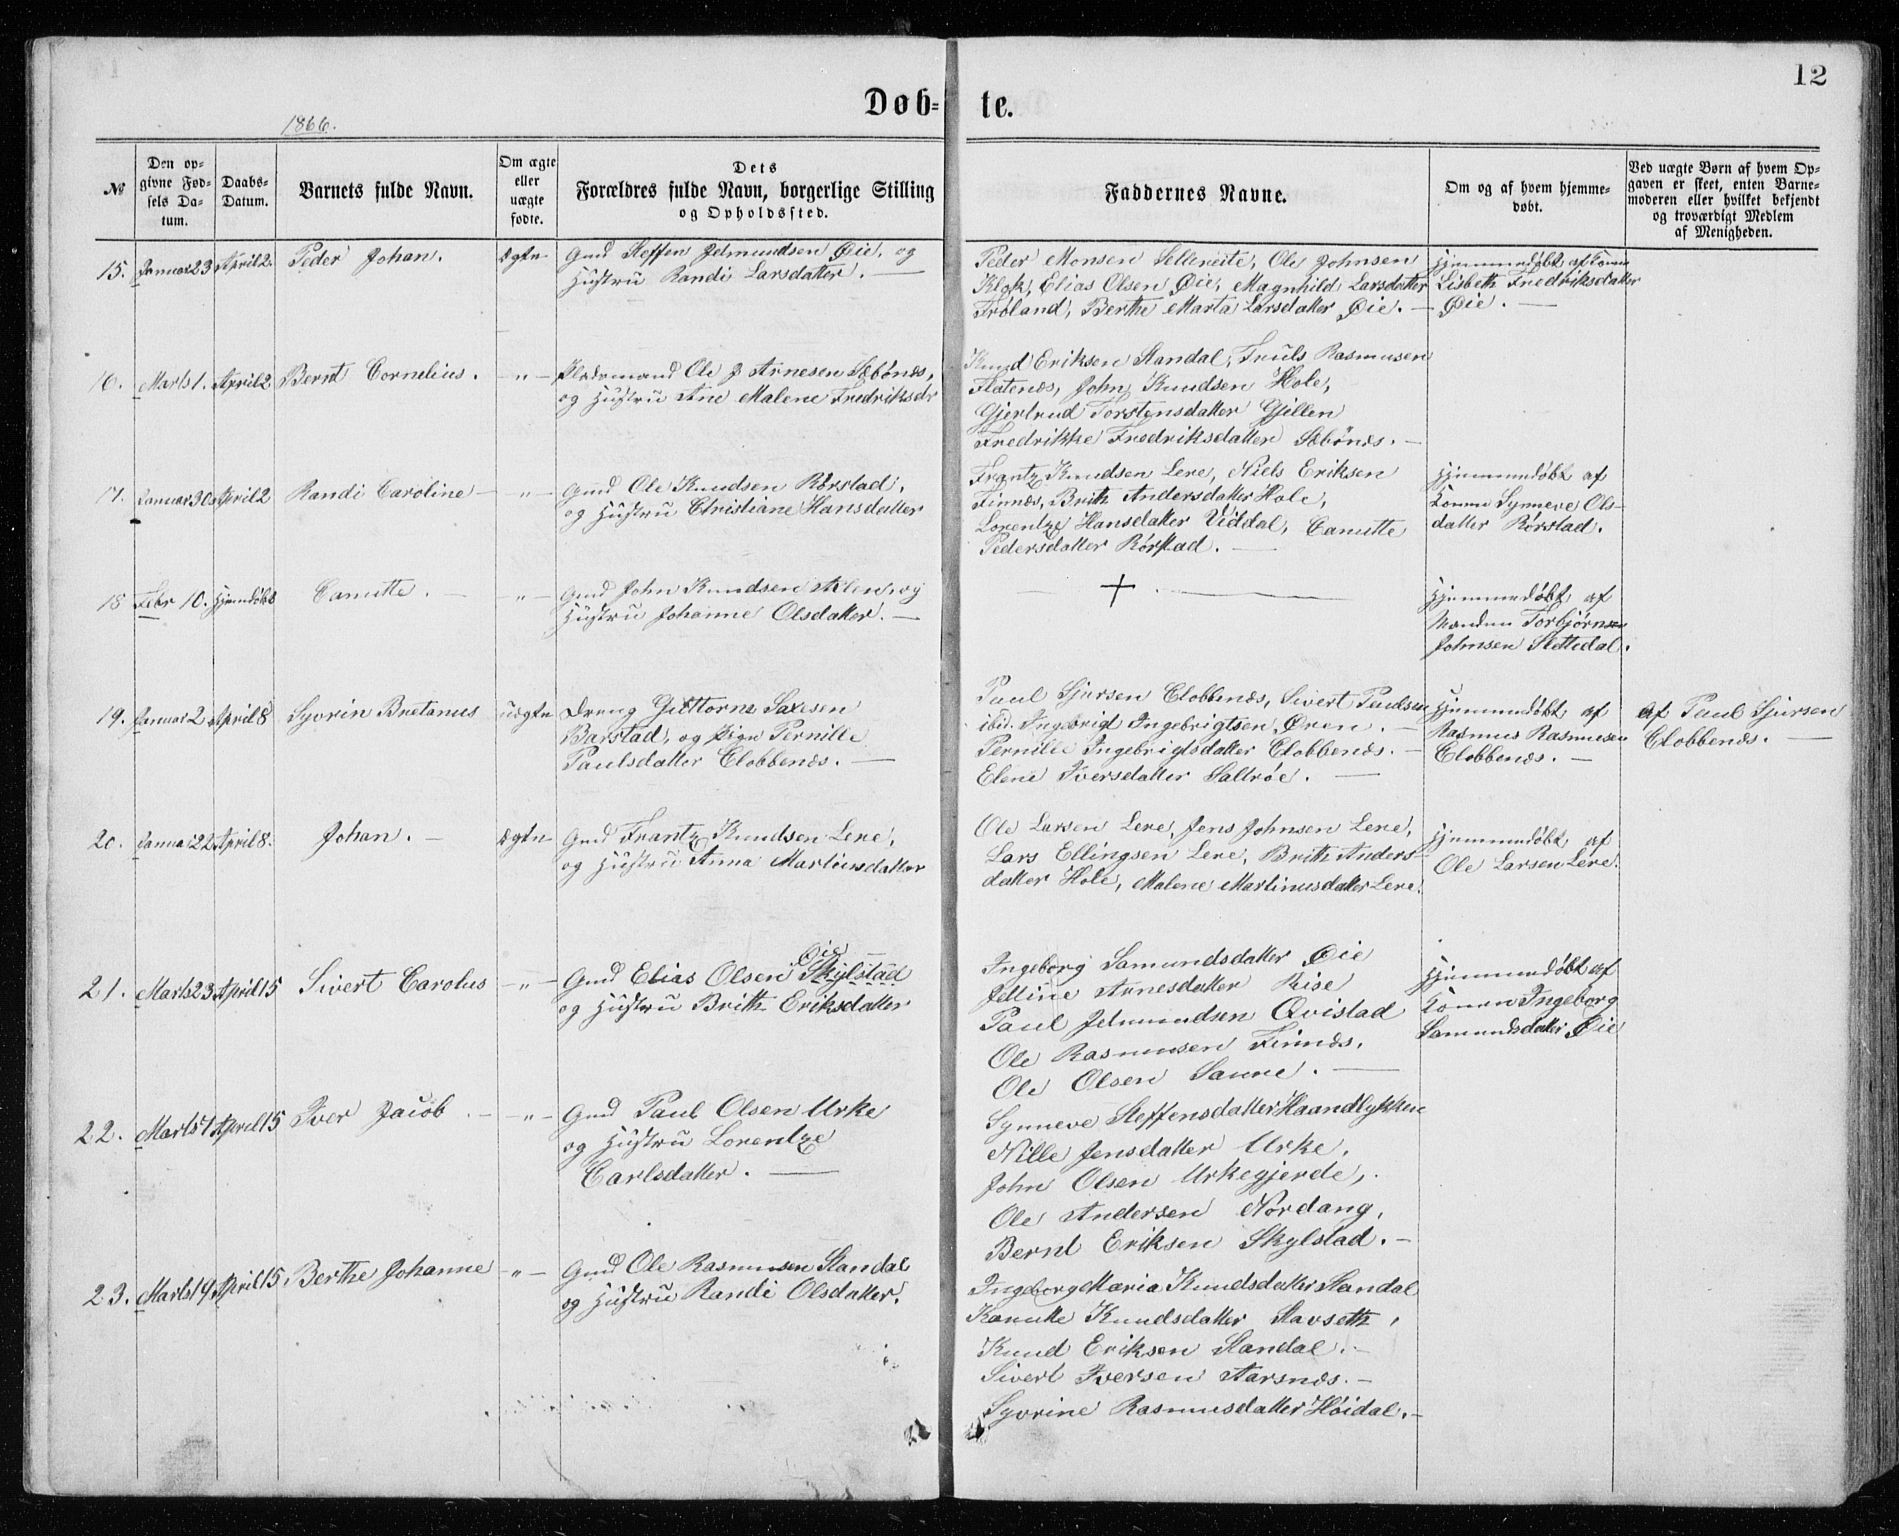 12
Døb- te.
1866.
№
Den op-
givne Fød-
sels Da-
tum.
Daabs-
Datum.
Barnets fulde Navn.
Om ægte
eller
uægte
fødte.
Dets
Forældres fulde Navn, borgerlige Stilling
og Opholdssted.
Faddernes Navne.
Om og af hvem hjemme-
døbt.
Ved uægte Børn af hvem Op-
gaven er skeet, enten Barne-
moderen eller hvilket bekjendt
og troværdigt Medlem
af Menigheden.
15. Januar 23 April 2. Peder Johan. ægte Gmd Steffen Jelmundsen Øie, og
Hustru Randi Larsdatter. —
Peder Monsen Sellereite, Ole Johnsen
Klok, Elias Olsen Øie, Magnhild Larsdatter
Frøland, Berthe Marta Larsdatter Øie. —
Hjemmedøbt af Konen
Lisbeth Fredriksdatter
Øie. —
16. Marts 1. April 2 Bernt Cornelius. — " — Pladsmand Ole J Arnesen Sæbønæs,
og Hustru Ane Malene Fredriksdr
Knud Eriksen Standal, Truls Rasmusen
Flatenæs, John Knudsen Hole,
Gjertrud Torstensdatter Gjillen
Fredrikke Fredriksdatter Sæbønæs. —
17. Januar 30 April 2 Randi Caroline — " — Gmd Ole Knudsen Rørstad,
og Hustru Christiane Hansdatter
Frantz Knudsen Lere, Niels Eriksen
Finnæs, Brith Andersdatter Hole,
Lorentze Hansdatter Viddal, Canutte
Pedersdatter Rørstad. —
Hjemmedøbt af
Konen Synneve Ols-
datter Rørstad.
18 Febr 10. Hjemdøbt Canutte. — " — Gmd John Knudsen Aklen, og
Hustru Johanne Olsdatter. —
— + . —
Hjemmedøbt af
Manden Torbjørnsen
Johnsen Slettedal.
19. Januar 2 April 8 Syvrin Bretanus uægte Dreng Guttorm Saxesen
Barstad, og Pige Pernille
Paulsdatter Clobbenæs. —
Paul Sjursen Clobbenæs, Sivert Paulsen
ibid. Ingebrigt Ingebrigtsen Øren. —
Pernille Ingebrigtsdatter Clobbenæs. —
Elene Iversdatter Saltrøe. —
Hjemmedøbt af
Rasmus Rasmusen
Clobbenæs. —
af Paul Sjursen
Clobbenæs. —
20. Januar 22 April 8. Johan. — ægte Gmd Frantz Knudsen Lere,
og Hustru Anna Martinsdatter
Ole Larsen Lere, Jens Johnsen Lere,
Lars Ellingsen Lere, Brith Anders-
datter Hole, Malene Martinusdatter Lere.
Hjemmedøbt af
Ole Larsen Lere.
Øie
21. Marts 23 April 15 Sivert Carolus — " — Gmd Elias Olsen Skylstad
og Hustru Brith Eriksdatter
Ingeborg Samundsdatter Øie
Jettine Arnesdatter Rise
Paul Jelmundsen Qvistad
Ole Rasmusen Finnæs.
Ole Olsen Saure. —
Hjemmedøbt af
Konen Ingeborg
Samundsdatter Øie
22. Marts 7 April 15 Iver Jacob — " — Gmd Paul Olsen Urke
og Hustru Lorentze
Carlsdatter. —
Synneve Steffensdatter Haandlykken
Nille Jensdatter Urke,
John Olsen Urkegjerde,
Ole Andersen Nordang,
Bernt Eriksen Skylstad. —
23. Marts 14 April 15 Berthe Johanne — " — Gmd Ole Rasmusen Standal
og Hustru Randi Olsdatter.
Ingeborg Maria Knudsdatter Standal
Kanutte Knudsdatter Stavseth,
Knud Eriksen Standal. —
Sivert Iversen Aarsnæs. —
Syvrine Rasmusdatter Høidal. —